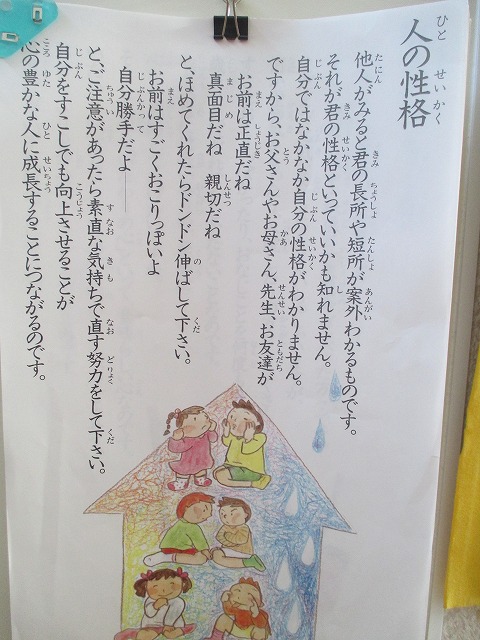 人の性格
他人がみると君の長所や短所が案外わかるものです。
それが君の性格といっていいかも知れません。
自分ではなかなか自分の性格がわかりません。
ですから、お父さんやお母さん、先生、お友達が
お前は正直だね
真面目だね　親切だね
と、ほめてくれたらドンドン伸ばして下さい。
お前はすごくおこりっぽいよ
自分勝手だよ――
と、ご注意があったら素直な気持ちで直す努力をして下さい。
自分をすこしでも向上させることが
心の豊かな人に成長することにつながるのです。